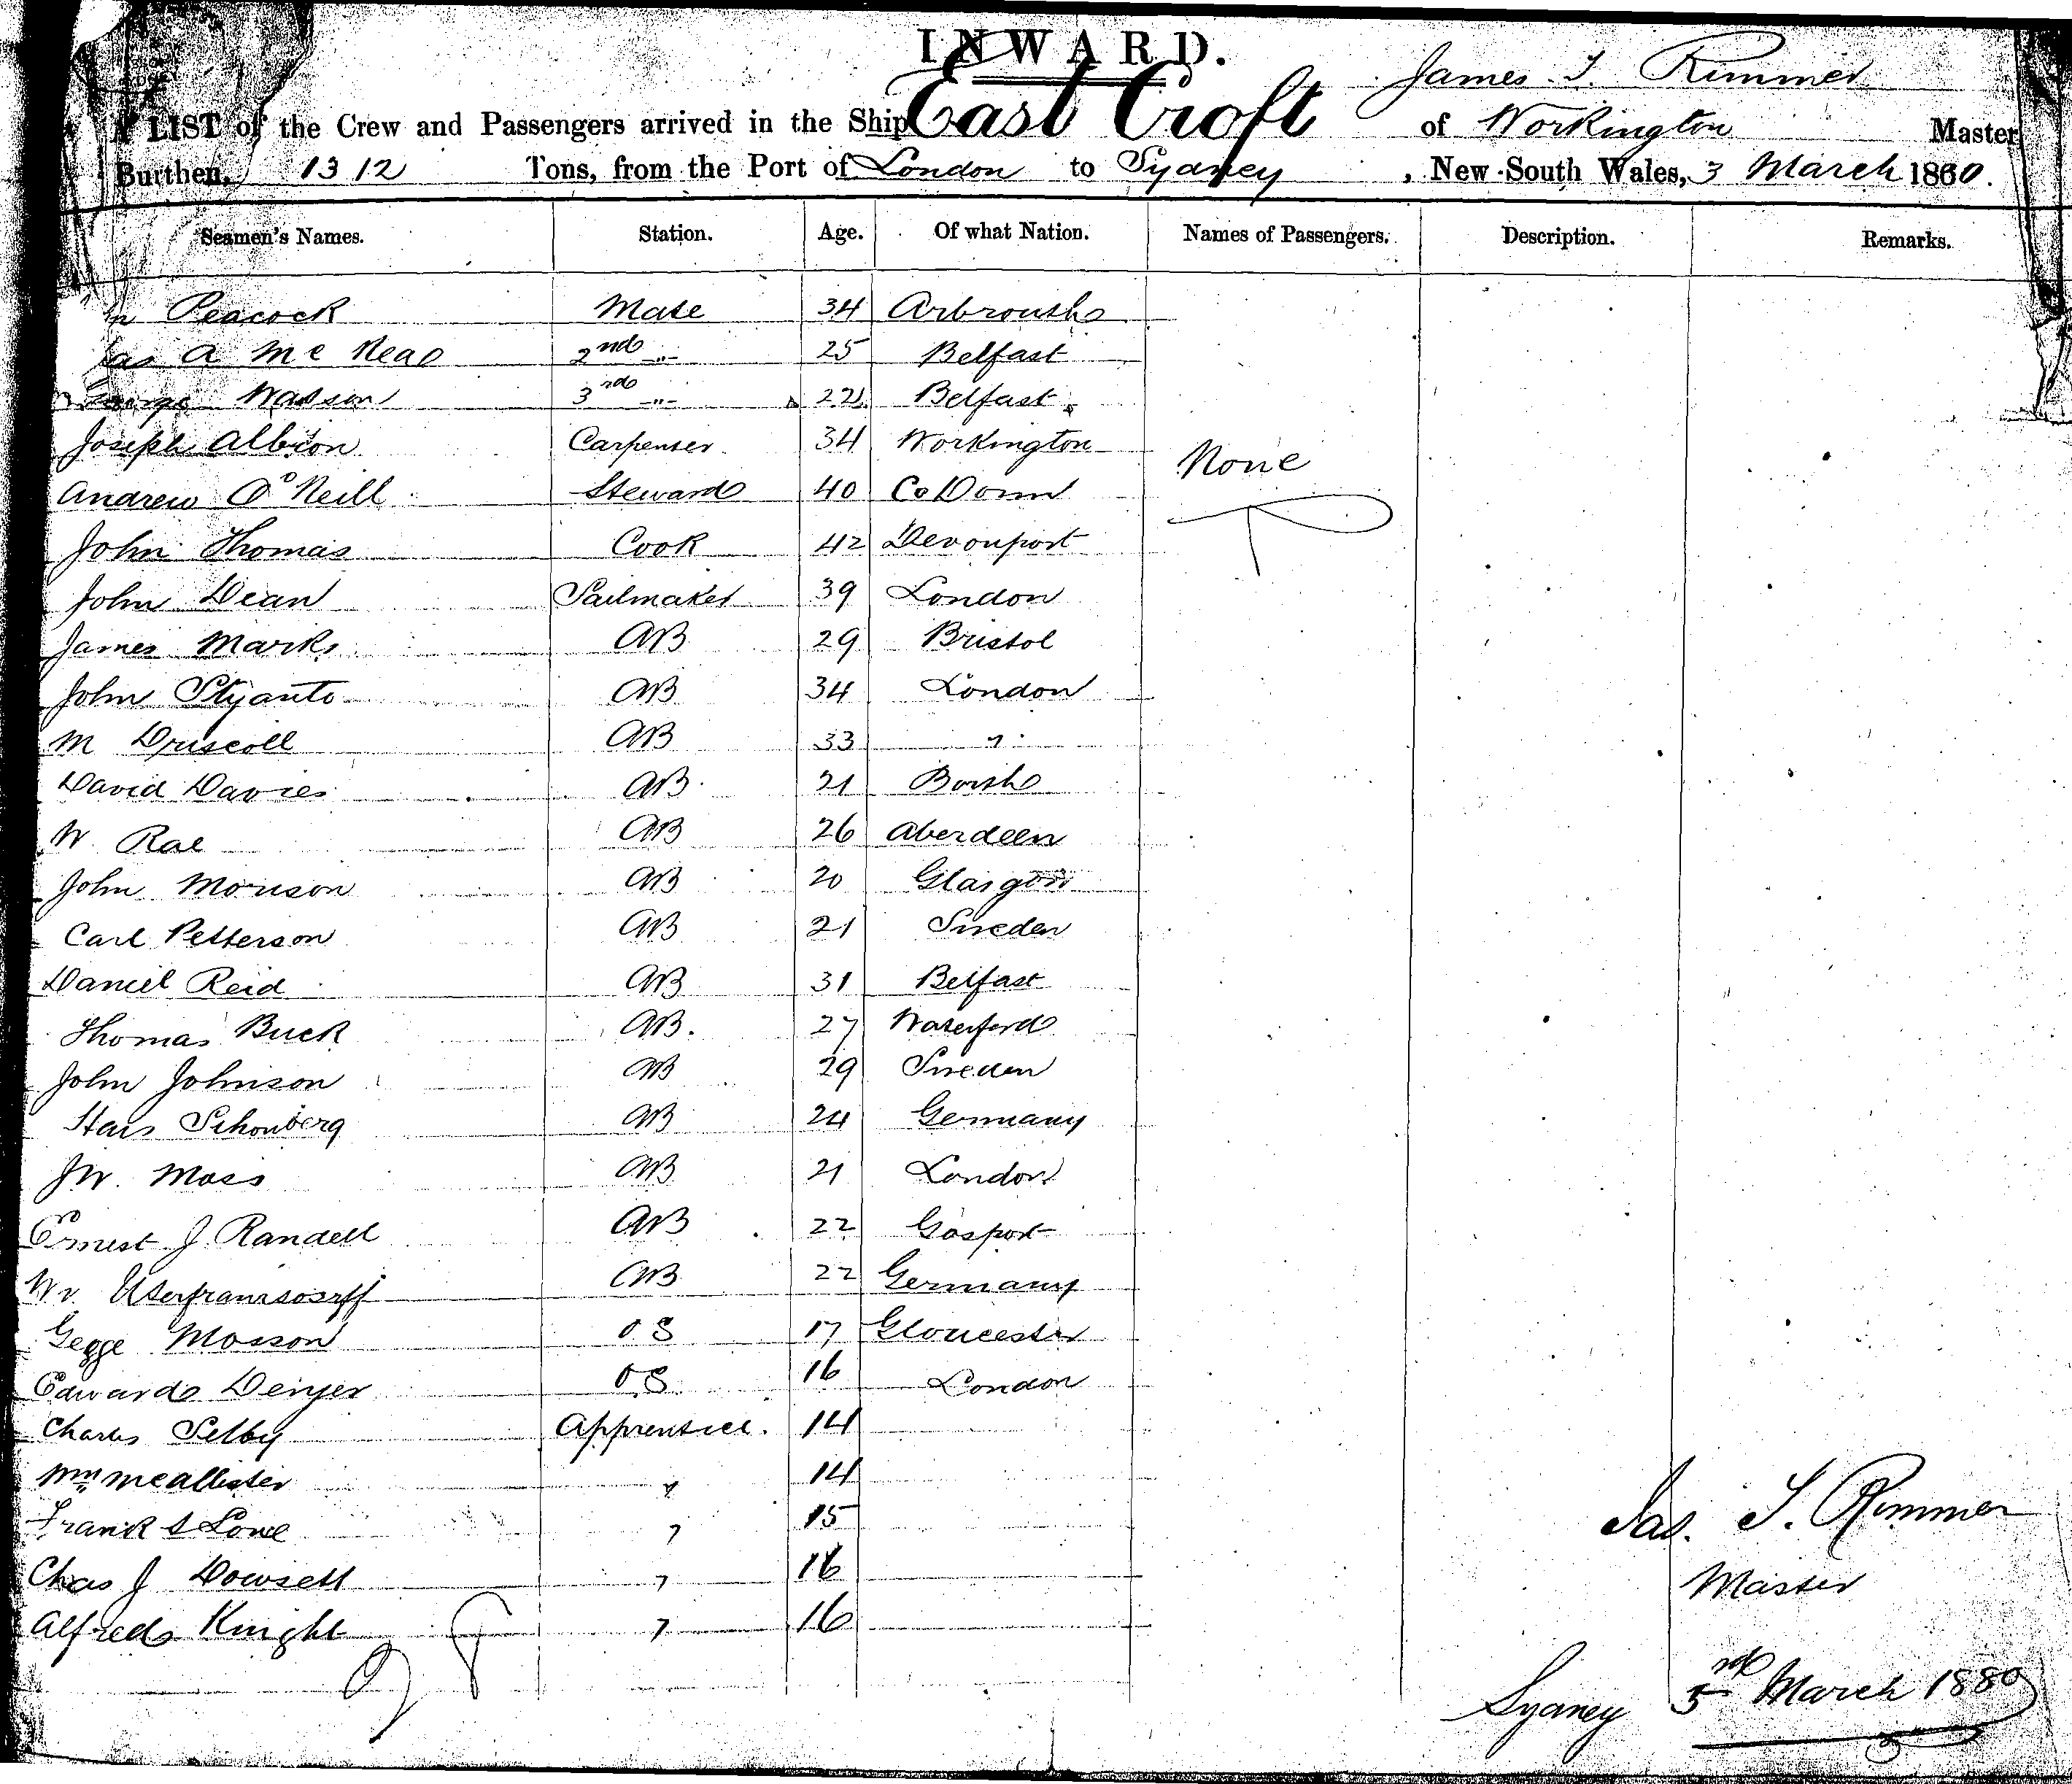 INWARD.
James T. Rimmer
A LIST of the Crew and Passengers arrived in the Ship East Croft of Workington Master
Burthen, 1312 Tons, from the Port of London to Sydney, New South Wales, 3 March 1880.
Seamen's Names. Station. Age. Of what Nation. Names of Passengers. Description. Remarks.
Peacock Mate 34 Arbroath
Jas A Mc Neao 2nd " 25 Belfast
George Wasson 3rd " 22 Belfast
Joseph Albion Carpenter 34 Workington
None
Andrew O'Neill Steward 40 Co Down
John Thomas Cook 42 Devonport
John Dean Sailmaker 39 London
James Marks AB 29 Bristol
John Styants AB 34 London
M Driscoll AB 33 "
David Davies AB 21 Borth
W. Rae AB 26 Aberdeen
John Morrison AB 20 Glasgow
Carl Petterson AB 21 Sweden
Daniel Reid AB 31 Belfast
Thomas Buck AB. 27 Waterford
John Johnson AB 29 Sweden
Hans Schonberg AB 24 Germany
JW. Moss AB 21 London
Ernest J. Randell AB 22 Gosport
AB 22 Germany
Mosson OS 17 Gloucester
Edward Denyer OS 16 London
Charles Selby Apprentice. 14
Wm McAllister " 14
Frank S Lowe " 15
Chas J Dowsett " 16
Alfred Knight " 16
Jas. T. Rimmer
Master
Sydney 3rd March 1880